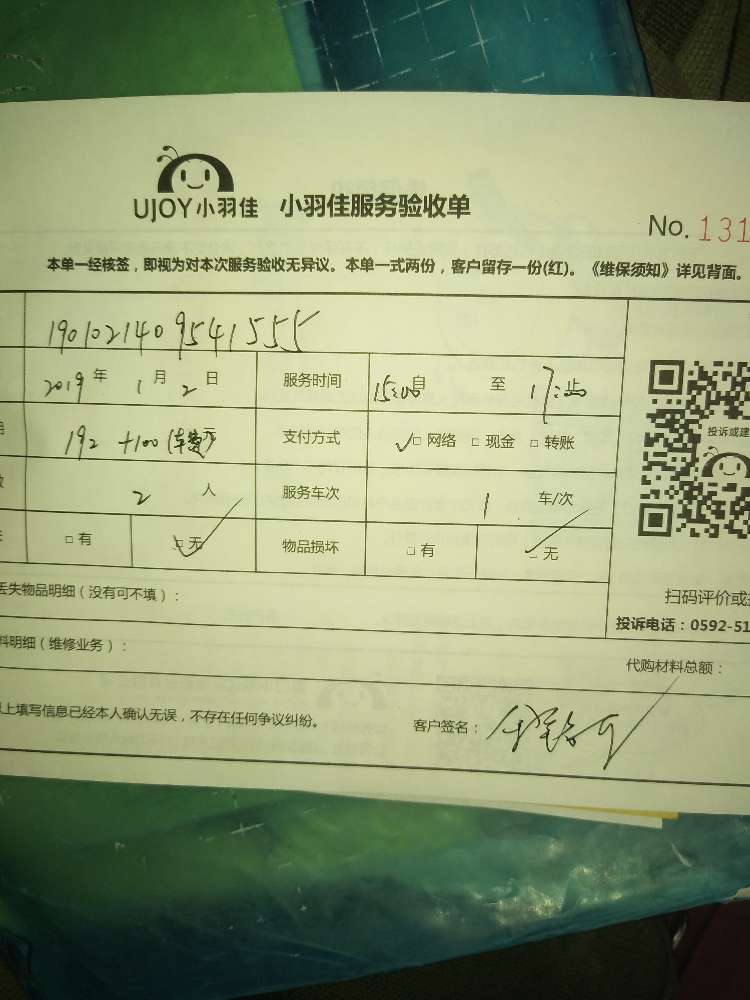 UJOY小羽佳 小羽佳服务验收单
No. 131
本单一经核签，即视为对本次服务验收无异议。本单一式两份，客户留存一份(红)。《维保须知》详见背面。
1901021409541555
2019年 1月 2日 服务时间 15:00自 至 17:止
192 +100(车费)元 支付方式 ✓□网络 □现金 □转账
投诉或建
2人 服务车次 1 车/次
□有 □无 物品损坏 □有 □无
丢失物品明细（没有可不填）：
扫码评价或
投诉电话：0592-51
料明细（维修业务）：
代购材料总额：
以上填写信息已经本人确认无误，不存在任何争议纠纷。
客户签名：